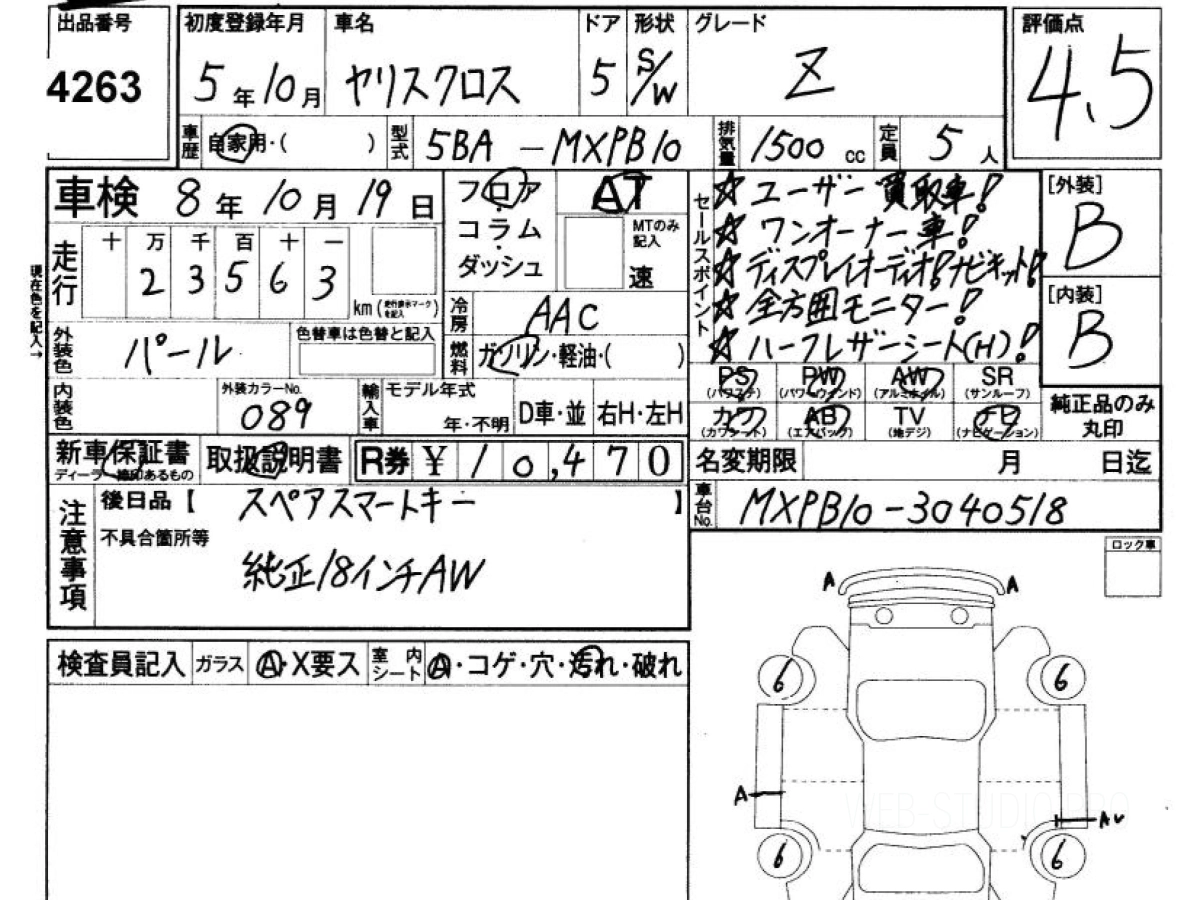 出品番号 初度登録年月 車名 ドア 形状 グレード 評価点
4263 5年10月 ヤリスクロス 5 S/W Z 4.5
車歴 自家用・( ) 型式 5BA-MXPB10 排気量 1500cc 定員 5人
車検 8年10月19日 フロア AT セールスポイント ☆ユーザー買取車! [外装]
走行 十 万 千 百 十 一 コラム・ MTのみ記入 ☆ワンオーナー車! B
2 3 5 6 3 km(走行表示マークを記入) ダッシュ 速 ☆ディスプレイオーディオ!ナビキット! [内装]
現在色を記入→ 冷房 AAC ☆全方囲モニター! B
外装色 パール 色替車は色替と記入 燃料 ガソリン・軽油・( ) ☆ハーフレザーシート(H)!
PS(パワステ) PW(パワーウィンド) AW(アルミホイル) SR(サンルーフ)
内装色 外装カラーNo. 089 輸入車 モデル年式 年・不明 D車・並 右H・左H カワ(カワシート) AB(エアバック) TV(地デジ) (ナビゲーション) 純正品のみ丸印
新車保証書 ディーラー捺印あるもの 取扱説明書 R券 ¥10,470 名変期限 月 日迄
注意事項 後日品【 スペアスマートキー 】 車台No. MXPB10-3040518
不具合箇所等
純正18インチAW
ロック車
A A
検査員記入 ガラス A・X要ス 室内シート A・コゲ・穴・汚れ・破れ
6 6
A
A
6 6
WEB-STUDIO.PRO